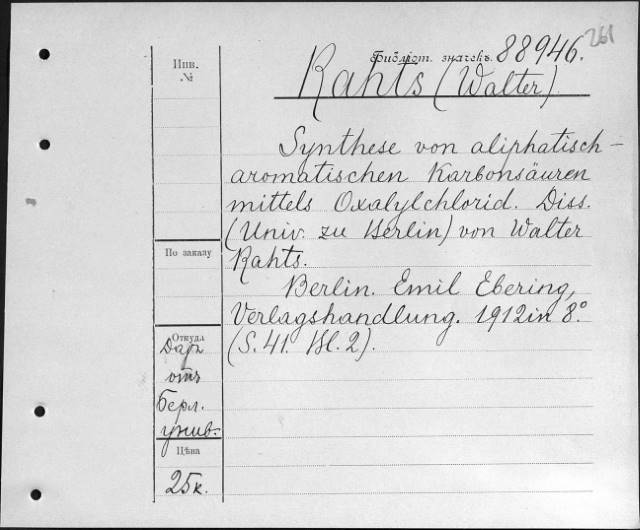 261
Библіот. значекъ. 88946.
Rahts (Walter)
Synthese von aliphatisch-
aromatischen Karbonsäuren
mittels Oxalylchlorid. Diss.
(Univ. zu Berlin) von Walter
Rahts.
Berlin. Emil Ebering,
Verlagshandlung. 1912 in 8.°
(S. 41. Bl. 2).
Инв.
№
По заказу
Откуда
Даръ
отъ
Берл.
унив.
Цѣна
25к.